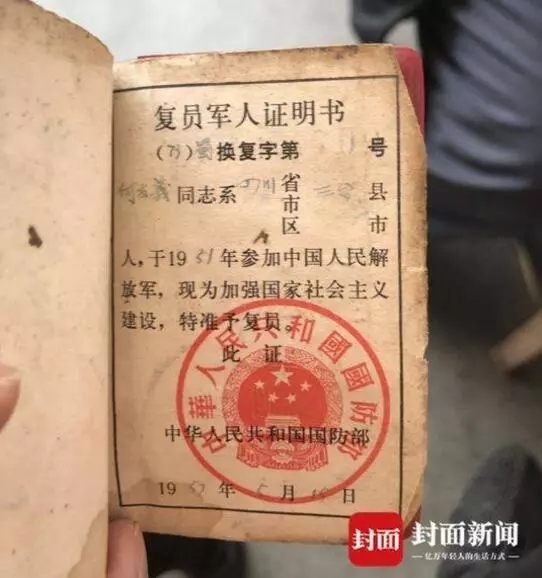 复员军人证明书
(73)蜀换复字第 号
何 義同志系四川省市区 三台县市
人，于1951年参加中国人民解
放军，现为加强国家社会主义
建设，特准予复员。
此证
中華人民共和國國防部
中华人民共和国国防部
1957年5月 日
封面 封面新闻
亿万年轻人的生活方式